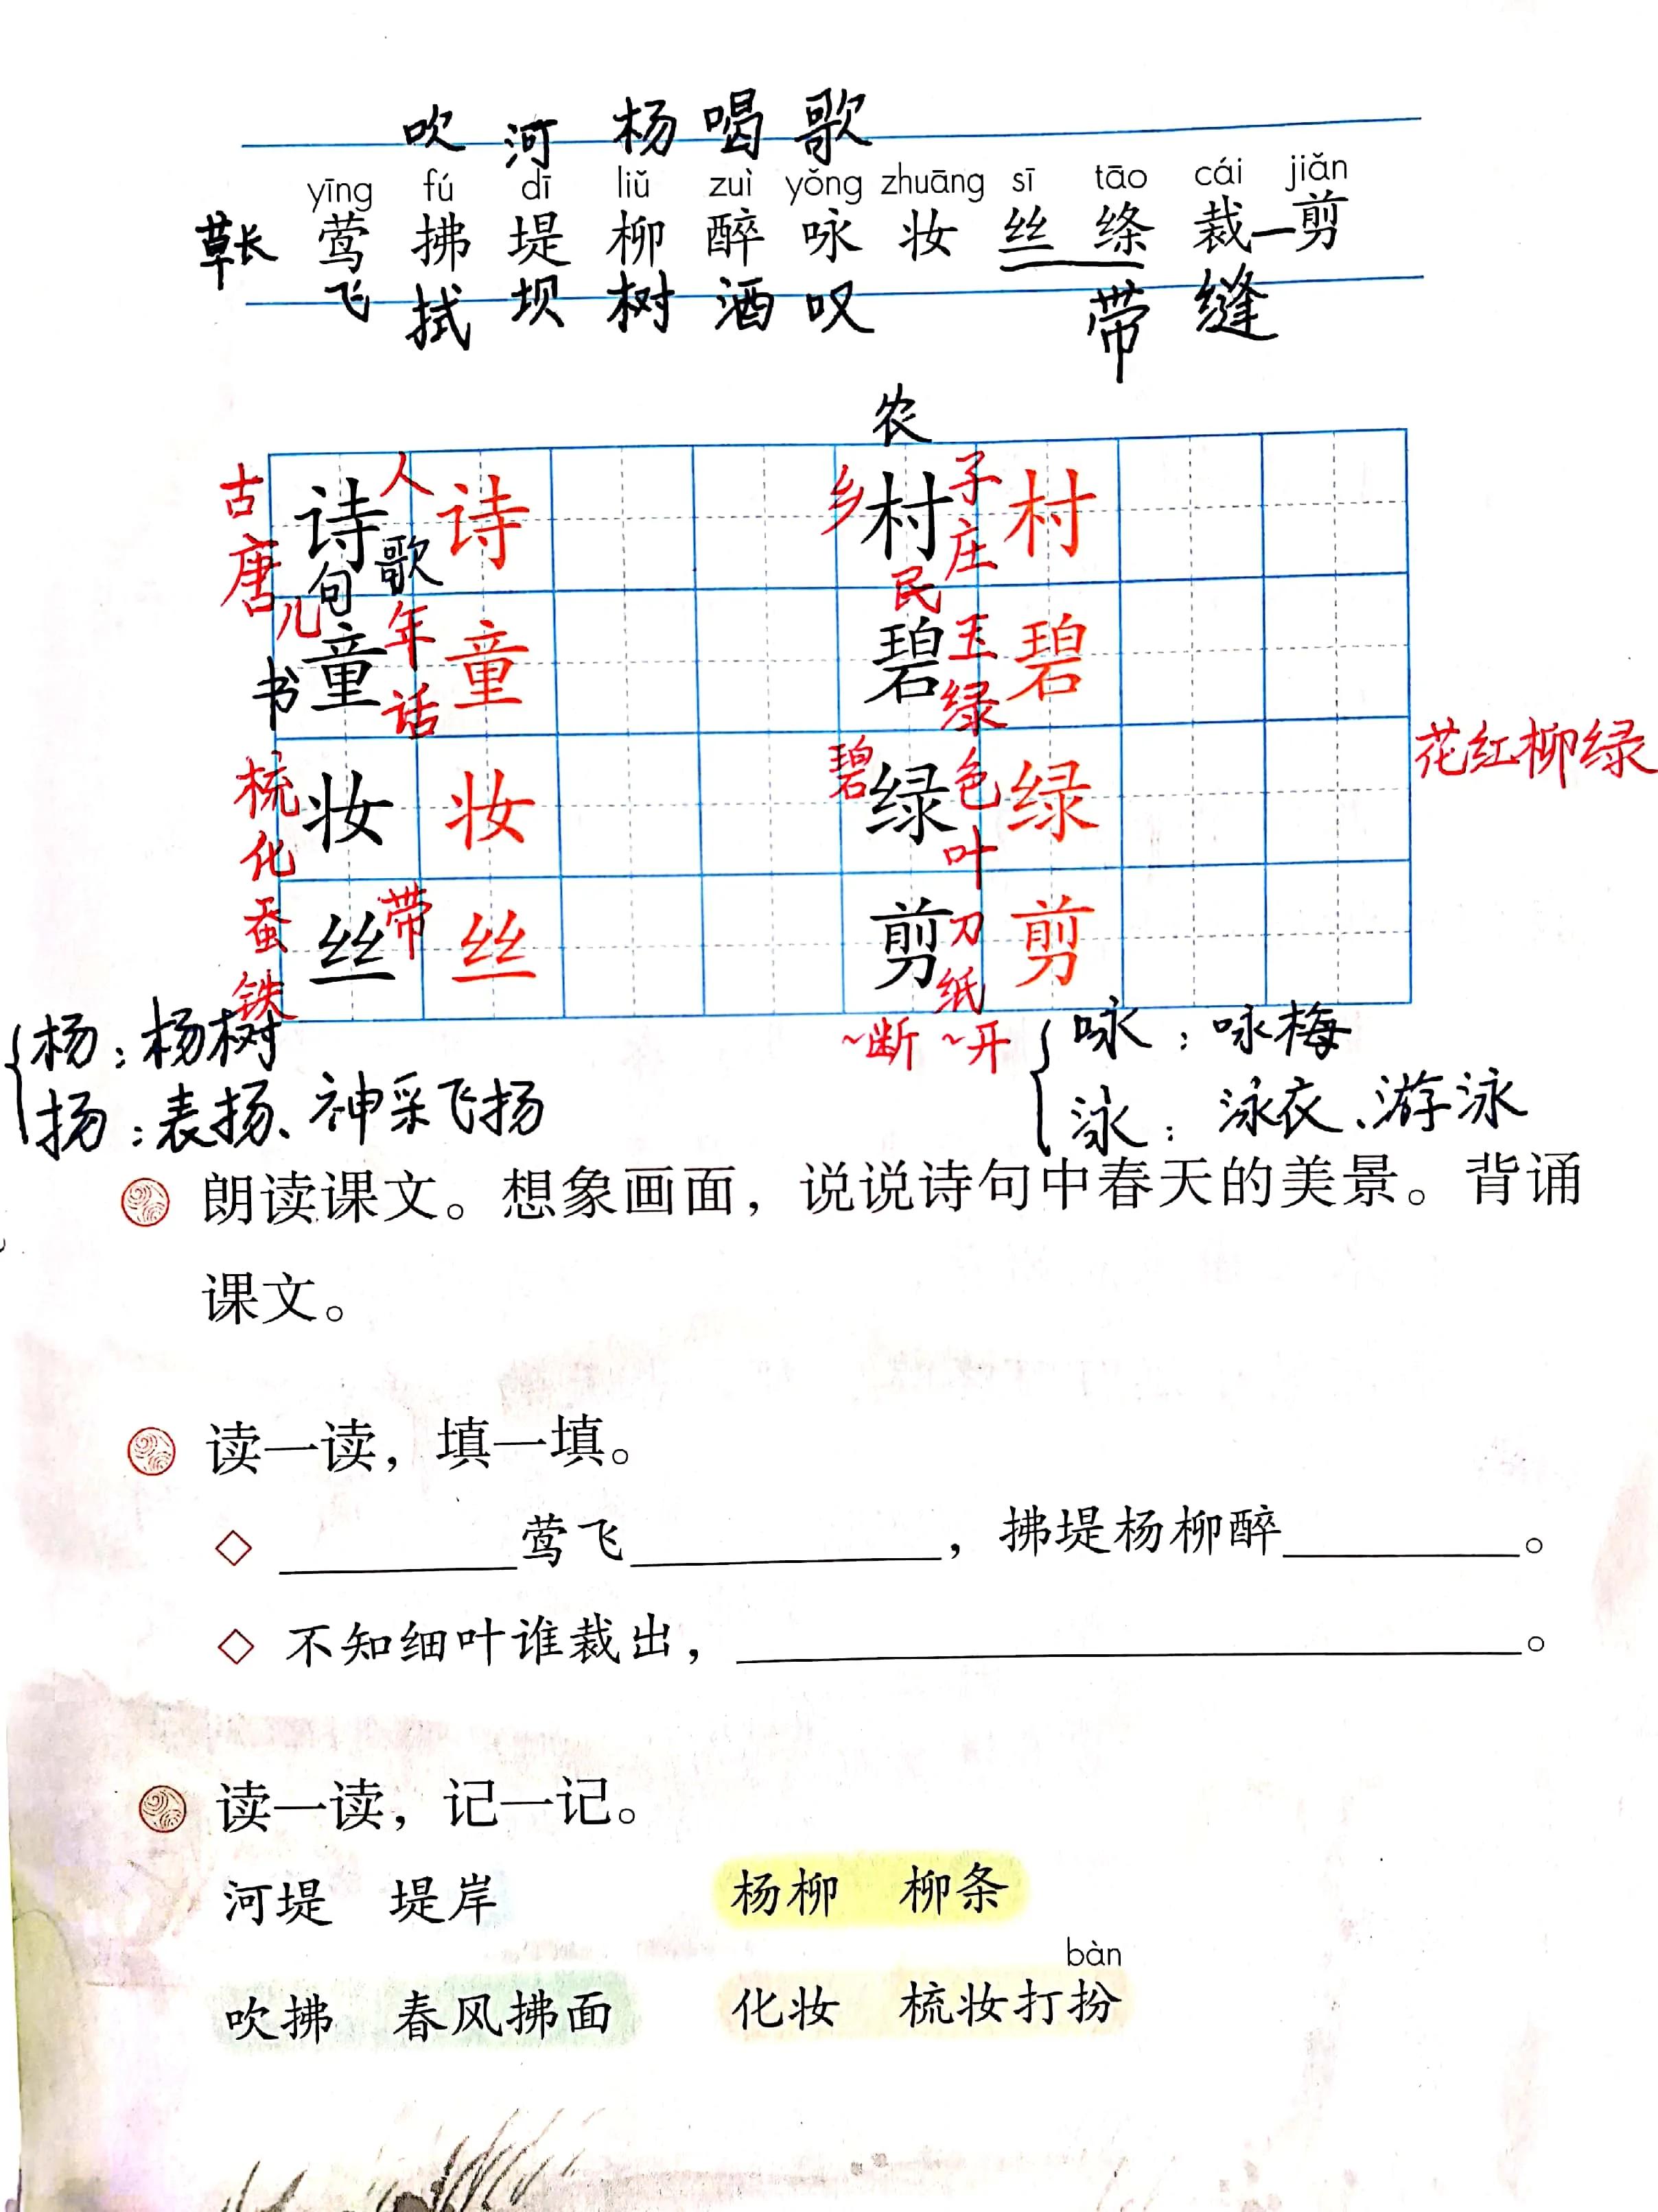 吹 河 杨 喝 歌
yīng fú dī liǔ zuì yǒng zhuāng sī tāo cái jiǎn
草长 莺 拂 堤 柳 醉 咏 妆 丝 绦 裁—剪
飞 拭 坝 树 酒 叹 带 缝
农
古 诗 人 诗 乡 村 子 村
唐 句 歌 庄
儿 年 民 玉
书 童 话 童 碧 绿 碧
梳 妆 妆 碧 绿 色 绿 花红柳绿
化 叶
蚕 丝 带 丝 剪 刀 剪
铁 纸
~断 ~开
杨:杨树 咏:咏梅
扬:表扬、神采飞扬 泳:泳衣、游泳
朗读课文。想象画面，说说诗句中春天的美景。背诵
课文。
读一读，填一填。
◇ ________莺飞________，拂堤杨柳醉________。
◇ 不知细叶谁裁出，________________。
读一读，记一记。
河堤 堤岸 杨柳 柳条
bàn
吹拂 春风拂面 化妆 梳妆打扮